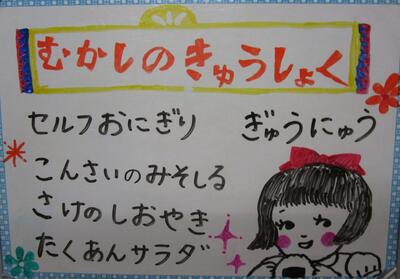 むかしのきゅうしょく
セルフおにぎり ぎゅうにゅう
こんさいのみそしる
さけのしおやき
たくあんサラダ